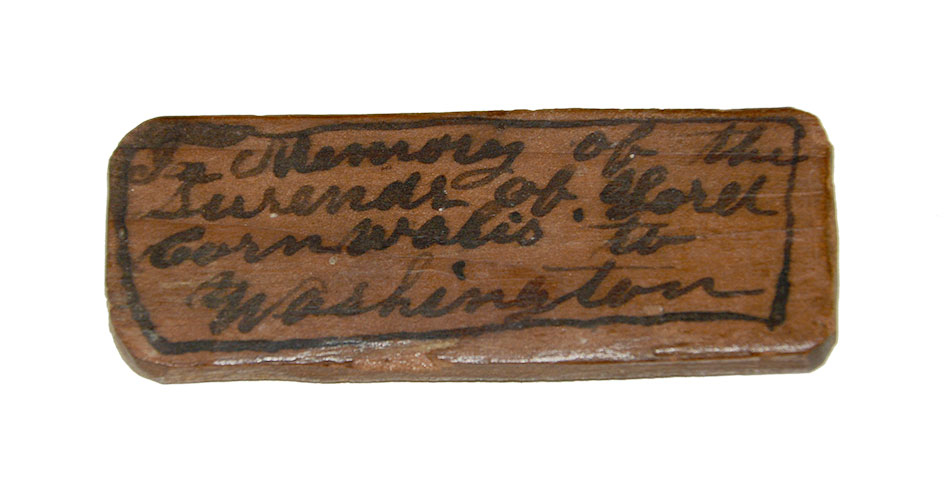 In Memory of the
Surendr of Lord
Cornwalis. to
Washington